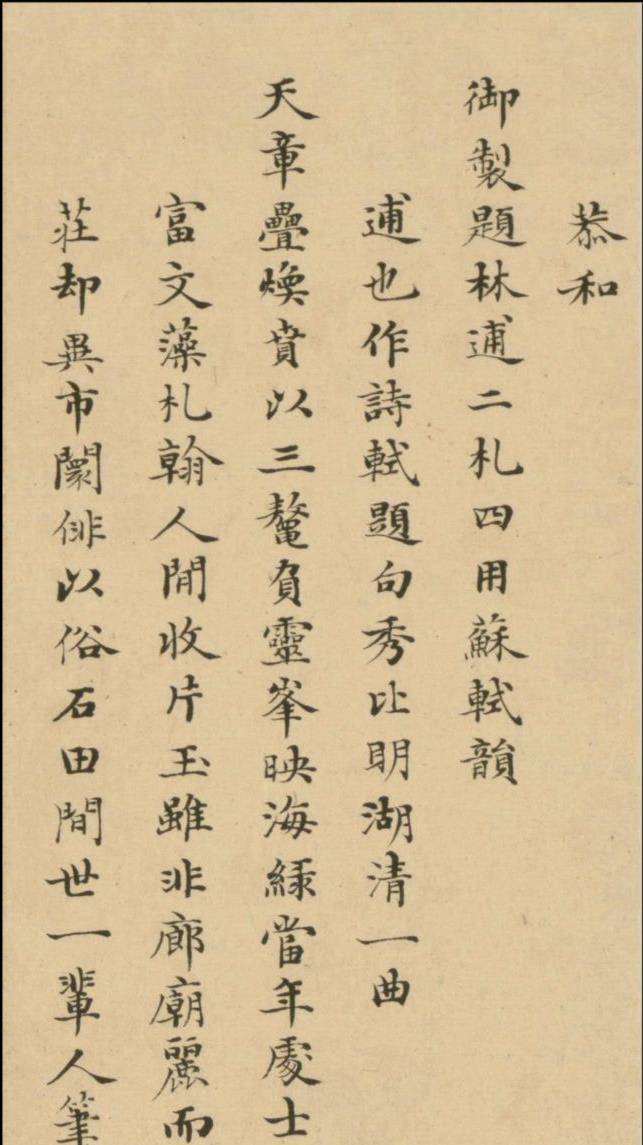 恭和
御製題林逋二札四用蘇軾韻
逋也作詩軾題句秀比明湖清一曲
天章疊煥賁以三鼇負靈峯映海綠當年處士
富文藻札翰人間收片玉雖非廊廟麗而
莊却異市闤俳以俗石田間世一輩人筆